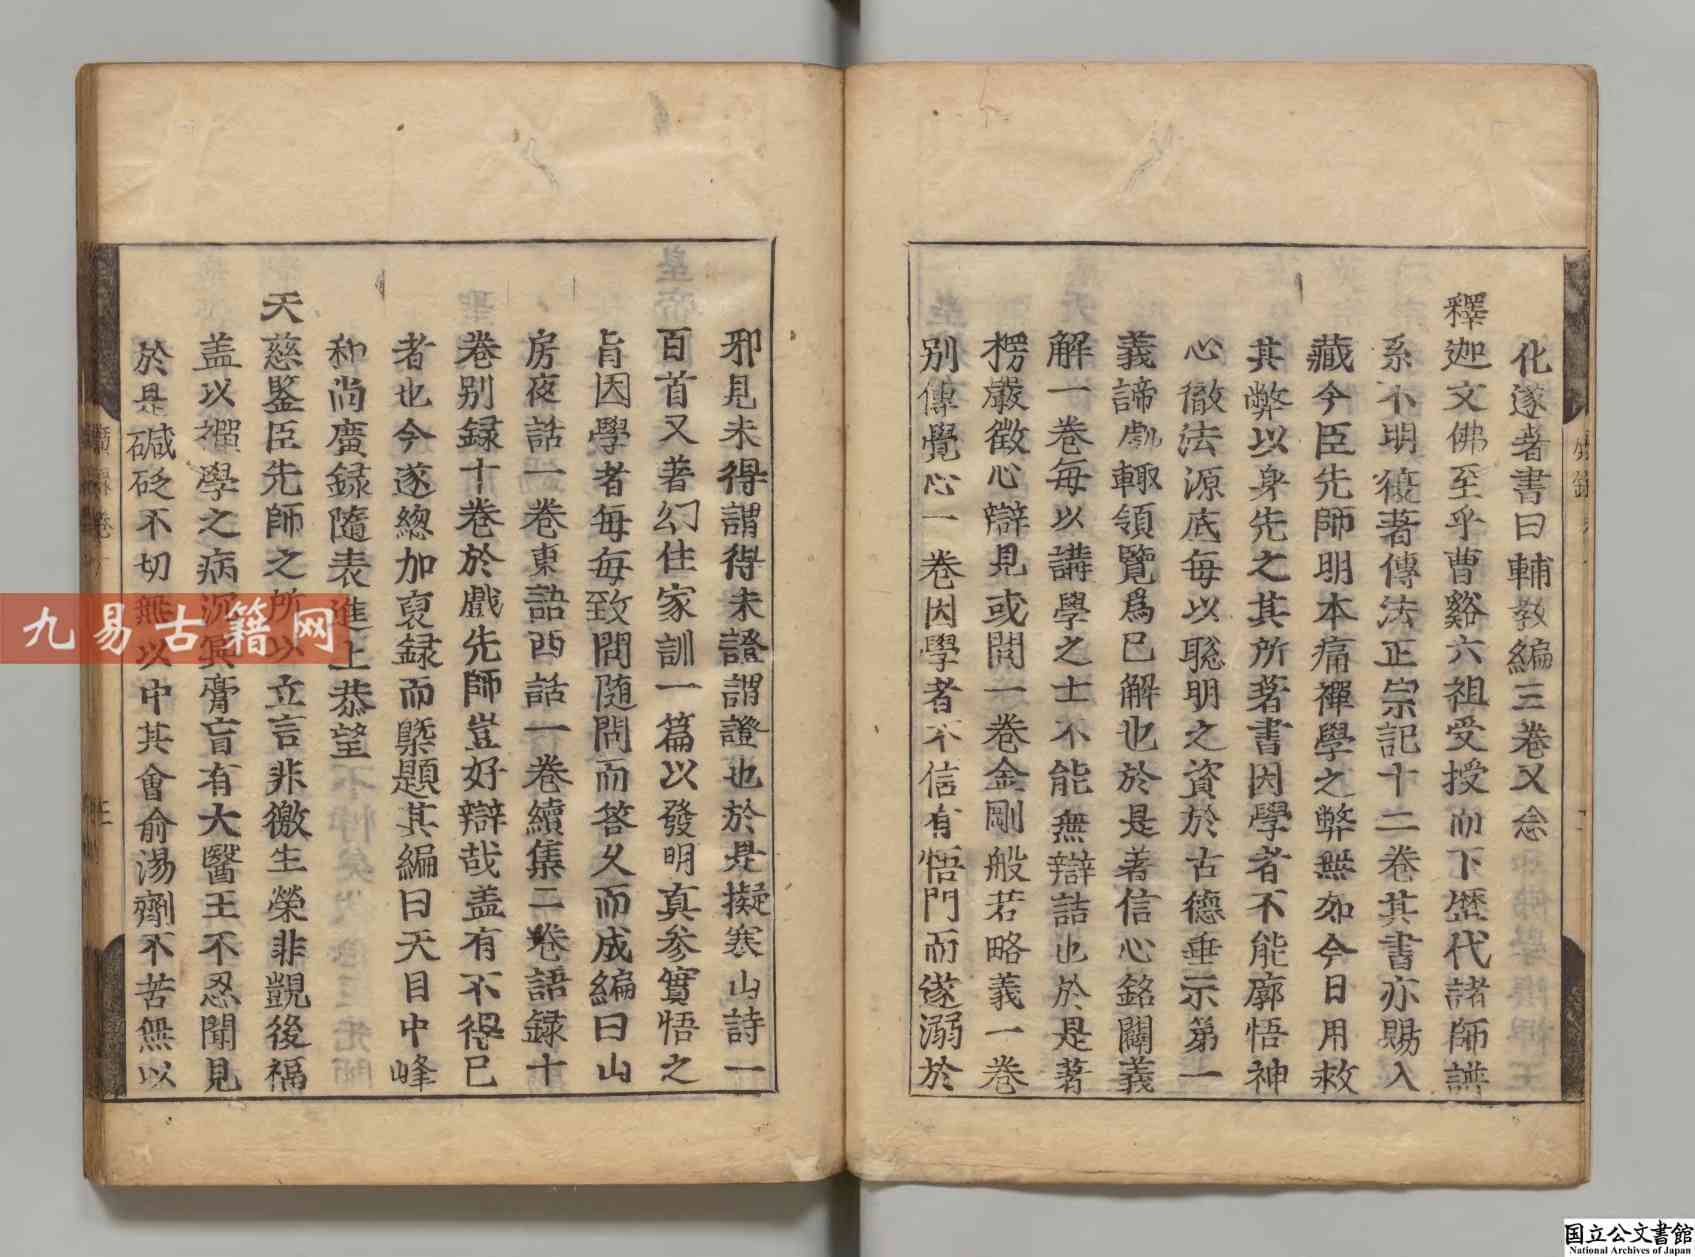 化遂著書曰輔教編三卷又念
釋迦文佛至乎曹谿六祖受授而下歷代諸師譜
系不明復著傳法正宗記十二卷其書亦賜入
藏今臣先師明本痛禪學之弊無如今日用救
其弊以身先之其所著書因學者不能廓悟神
心徹法源底每以聡明之資於古德垂示第一
義諦劇輙領覽爲已解也於是著信心銘闢義
解一卷每以講學之士不能無辯詰也於是著
楞嚴徵心辯見或問一卷金剛般若略義一卷
別傳覺心一卷因學者不信有悟門而遂溺於
邪見未得謂得未證謂證也於是擬寒山詩一
百首又著幻住家訓一篇以發明真參實悟之
旨因學者每每致問隨問而答久而成編曰山
房夜話一卷東語西話一卷續集二卷語録十
卷别録十卷於戲先師豈好辯哉盖有不得已
者也今遂總加裒録而槩題其編曰天目中峰
和尚廣録隨表進上恭望
天慈鑒臣先師之所以立言非徼生榮非覬後福
盖以禪學之病沉冥膏肓有大醫王不忍聞見
於是碱砭不切無以中其會俞湯劑不苦無以
九易古籍网
国立公文書館
National Archives of Japan